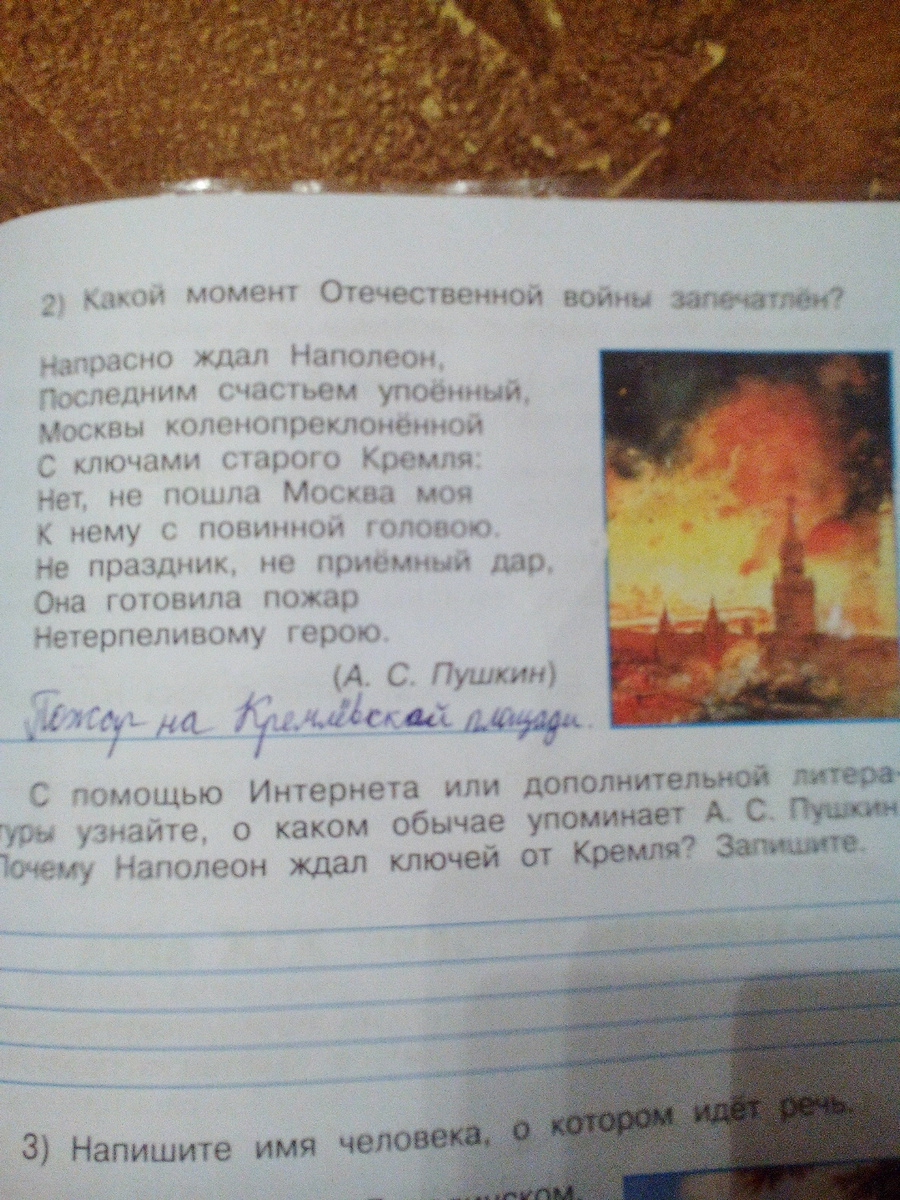 2) Какой момент Отечественной войны запечатлён?
Напрасно ждал Наполеон,
Последним счастьем упоённый,
Москвы коленопреклонённой
С ключами старого Кремля:
Нет, не пошла Москва моя
К нему с повинной головою.
Не праздник, не приёмный дар,
Она готовила пожар
Нетерпеливому герою.
(А. С. Пушкин)
Пожар на Кремлёвской площади.
С помощью Интернета или дополнительной литера-
туры узнайте, о каком обычае упоминает А. С. Пушкин
Почему Наполеон ждал ключей от Кремля? Запишите.
3) Напишите имя человека, о котором идёт речь.